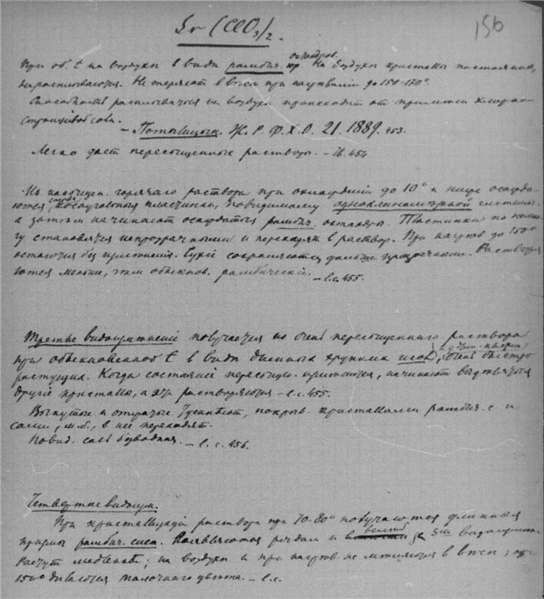 Sr (ClO₃)₂.
156
При об. t на воздухе в виде ромбич. октаэдров. На воздухе кристаллы постоянны,
не расплываются. Не теряют в весе при нагревании до 150-170°.
Способность расплываться на воздухе происходит от примеси хлористого
стронция.
— Потылицын. Ж. Р. Ф. Х. О. 21. 1889. 453.
Легко дает пересыщенные растворы. — ib. 454
Из насыщен. горячего раствора при охлаждении до 10° и ниже осаждаются
пластинки, по-видимому одноклиномерной системы.
а затем начинают осаждаться ромбич. октаэдры. Пластинки по
становятся непрозрачными и переходят в раствор. При нагрев до 150°
остаются без изменения. Сухие сохраняются дольше прозрачными. Растворяются
меньше, чем обыкнов. ромбический. — l.c. 455.
Третье видоизменение получается из очень пересыщенного раствора
при обыкновенной t в виде длинных хрупких игол, очень быстро
растущих. Когда состояние пересыщ. кончается, начинают выделяться
другие кристаллы, а эти растворяются — l.c. 455.
Вынутые и отжатые тускнеют, покрыв. кристаллами ромбич. с и
сами, м. б., в нее переходят.
По вид. соль безводная. — l. c. 456.
Четвертое видоизм.
При кристаллизации раствора при 70-80° получаются длинные
призмы ромбич. сист. Появляются рядом и вместе с 3им видоизмен.
Растут медленно; на воздухе и при нагрев. не меняются в весе; при
150° делаются молочного цвета. — l.c.